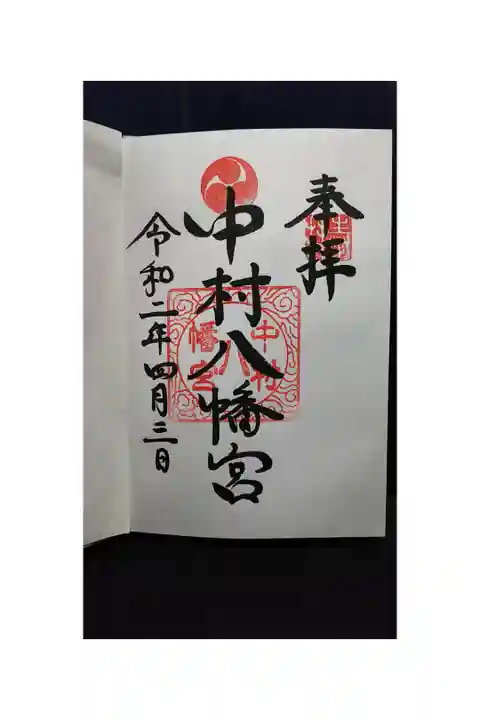 奉拝
中村八幡宮
中村八幡宮
令和二年四月三日